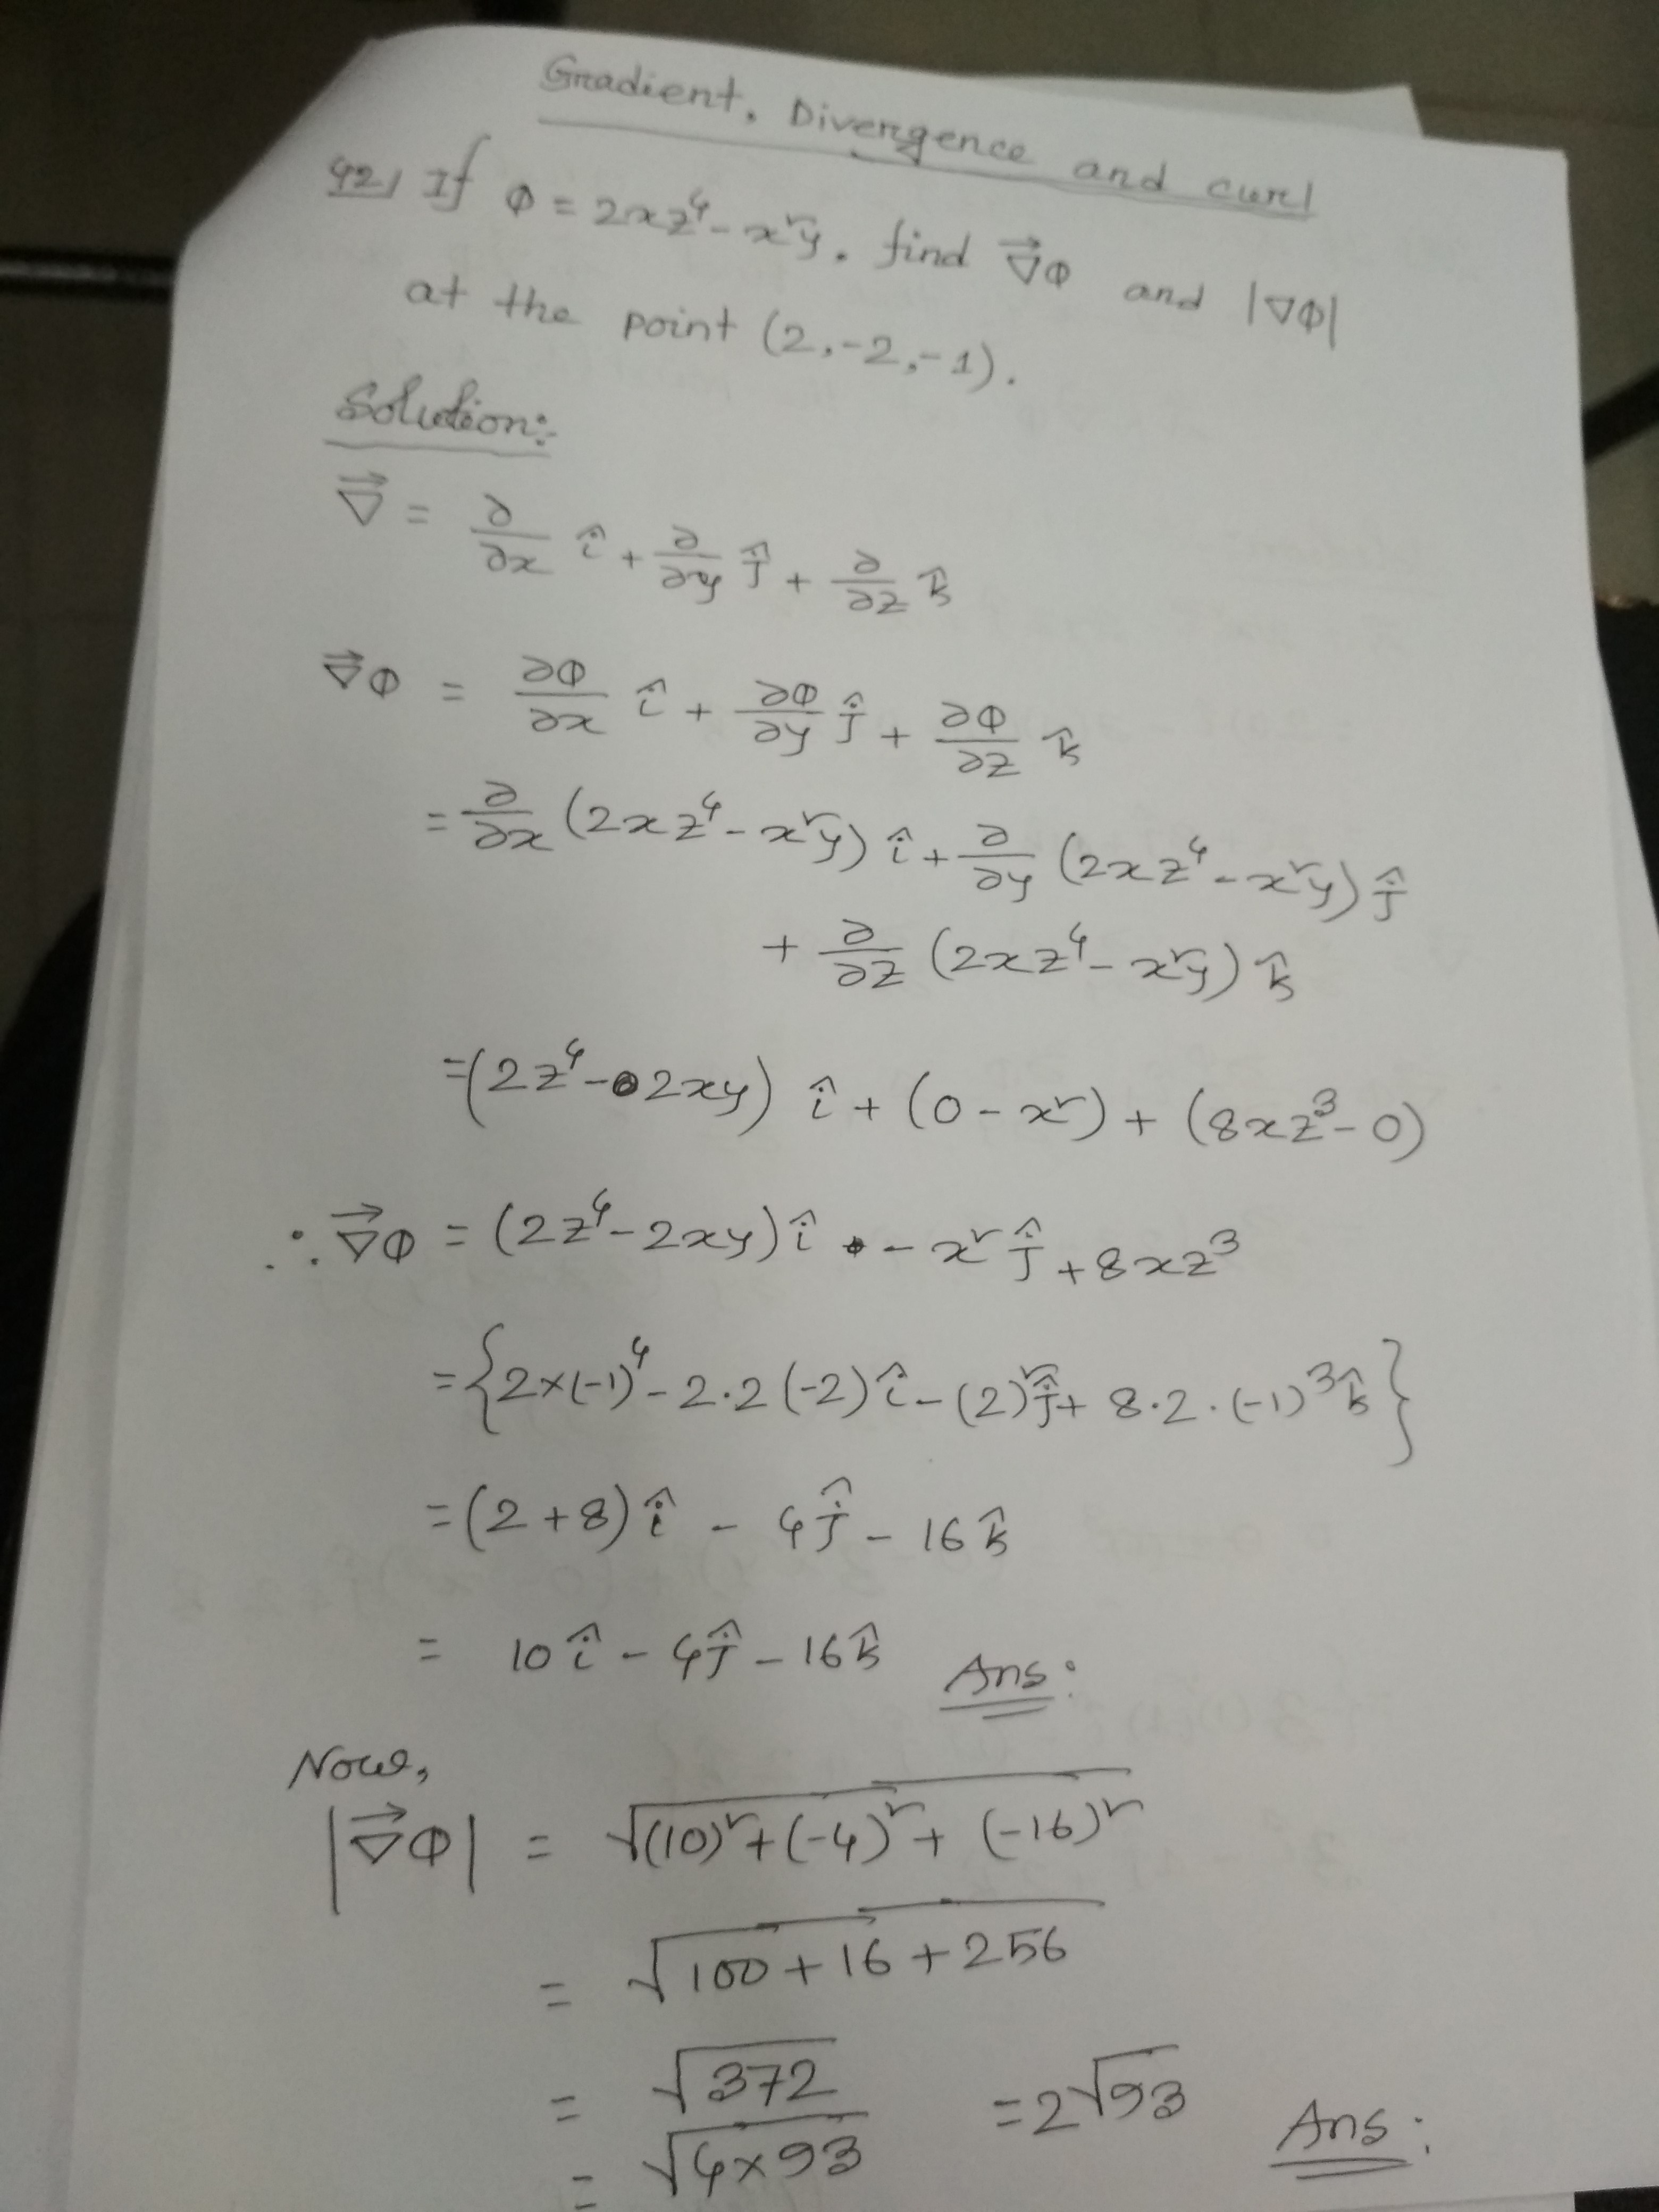 Gradient, Divergence and curl
42/ If Φ = 2xz⁴ - x²y. find ∇⃗Φ and |∇Φ|
at the point (2,-2,-1).
Solution:-
∇⃗ = ∂/∂x î + ∂/∂y ĵ + ∂/∂z k̂
∇⃗Φ = ∂Φ/∂x î + ∂Φ/∂y ĵ + ∂Φ/∂z k̂
= ∂/∂x (2xz⁴ - x²y) î + ∂/∂y (2xz⁴ - x²y) ĵ
+ ∂/∂z (2xz⁴ - x²y) k̂
= (2z⁴ - 2xy) î + (0 - x²) + (8xz³ - 0)
∴ ∇⃗Φ = (2z⁴ - 2xy) î - x² ĵ + 8xz³
= {2×(-1)⁴ - 2·2(-2) î - (2)² ĵ + 8·2·(-1)³ k̂}
= (2+8) î - 4ĵ - 16k̂
= 10î - 4ĵ - 16k̂ Ans:
Now,
|∇⃗Φ| = √((10)² + (-4)² + (-16)²)
= √(100 + 16 + 256)
= √372
= √(4×93) = 2√93 Ans: